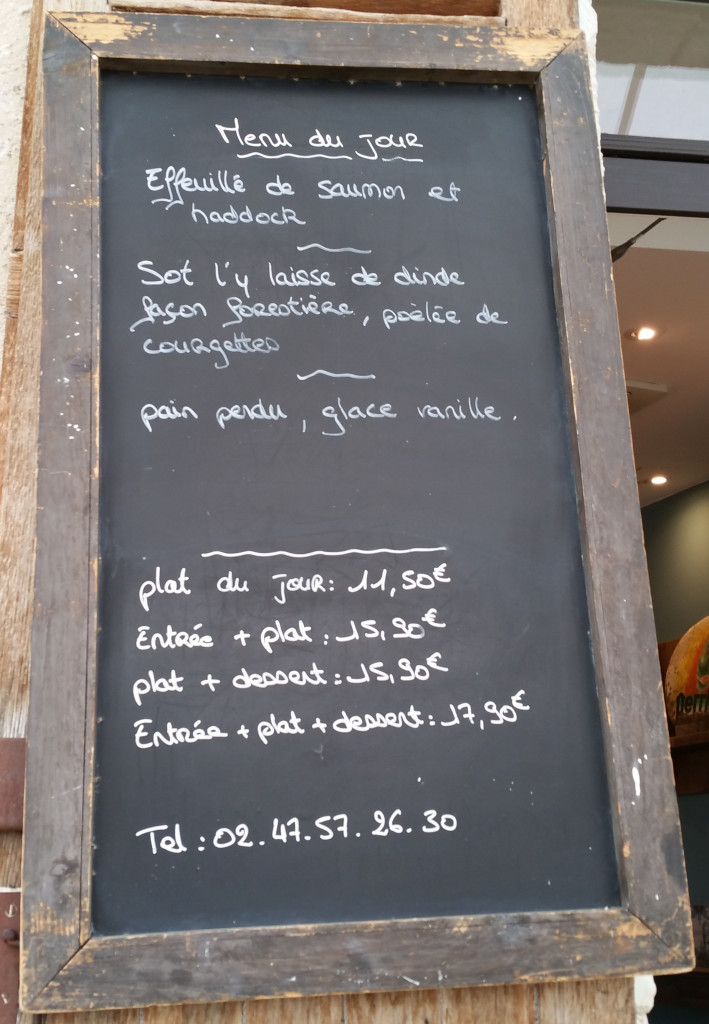 Menu du jour
Effeuillé de saumon et
haddock
Sot l'y laisse de dinde
façon forestière, poèlée de
courgettes
pain perdu, glace vanille.
plat du jour: 11,50€
Entrée + plat : 15,90€
plat + dessert : 15,90€
Entrée + plat + dessert : 17,90€
Tel : 02.47.57.26.30